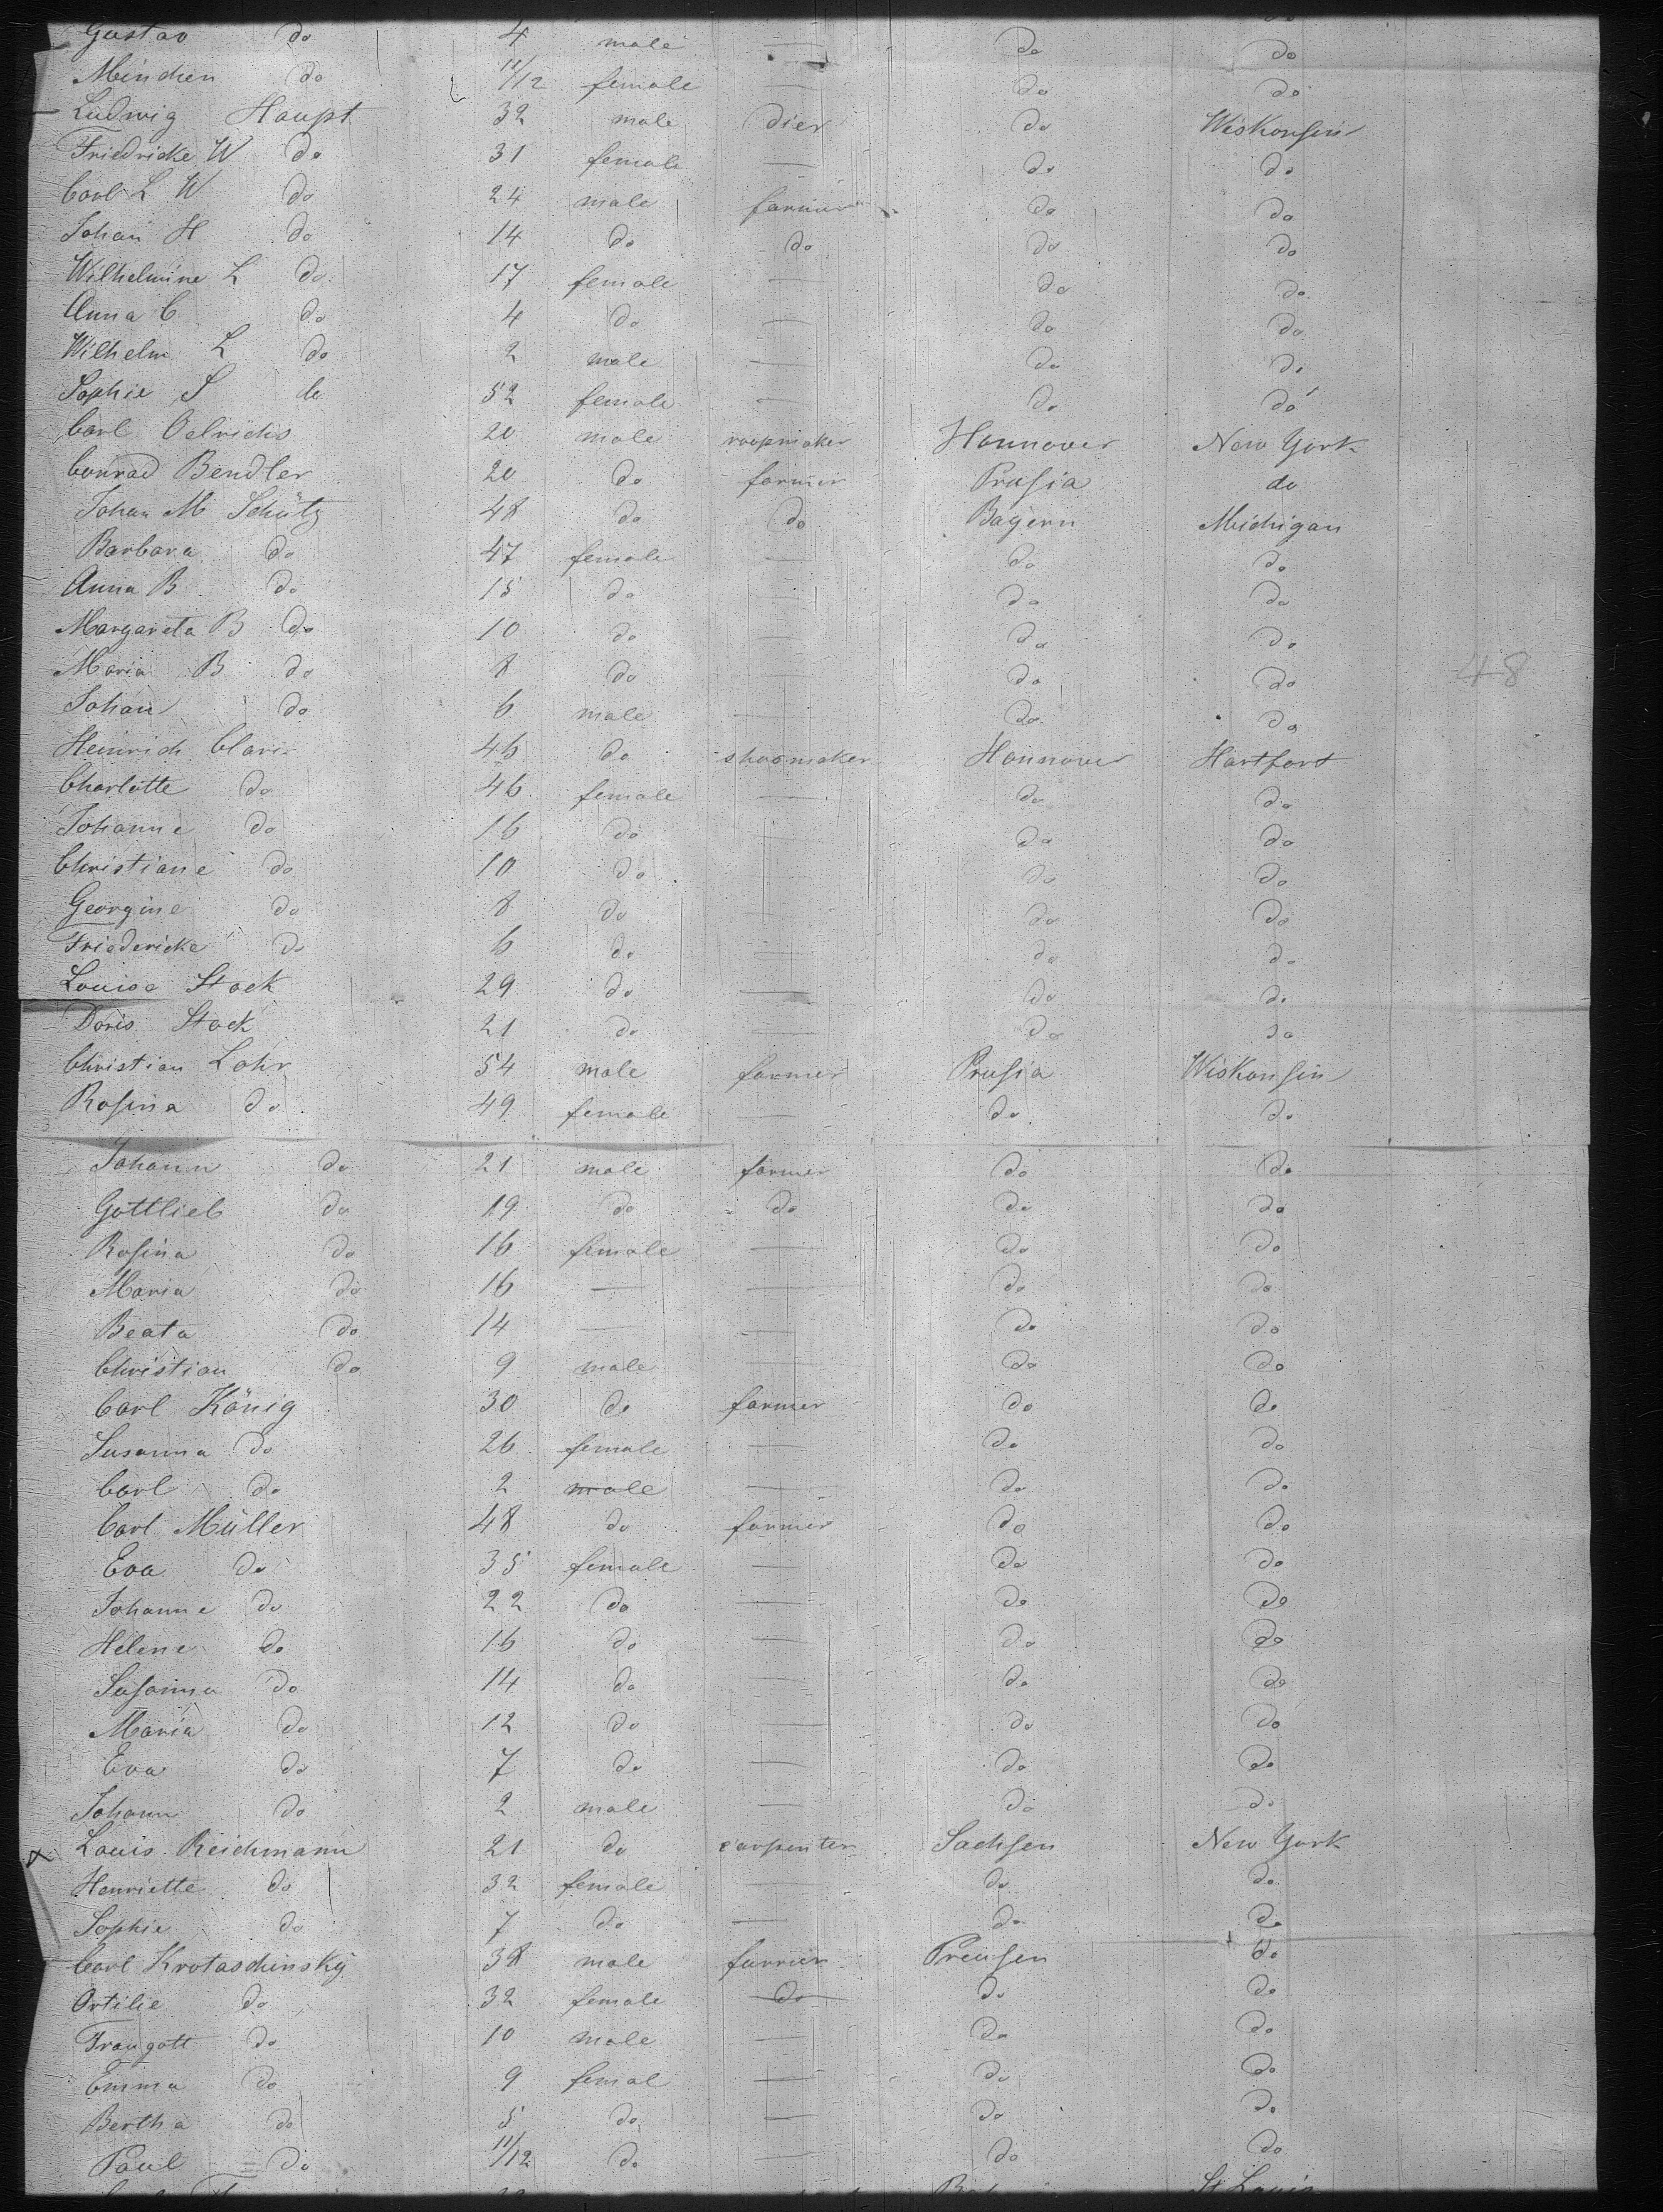 Gustav do 4 male — do do
Minchen do 11/12 female — do do
Ludwig Haupt 32 male dier do Wiskonsin
Friedricke W do 31 female — do do
Carl L W do 24 male farmer do do
Johan H do 14 do do do do
Wilhelmine L do 17 female — do do
Anna C do 4 do — do do
Wilhelm L do 2 male — do do
Sophie S do 52 female — do do
Carl Oelrichs 20 male roopmaker Hannover New York
Conrad Bendler 20 do farmer Prusia do
Johan M Schütz 48 do do Bayern Michigan
Barbara do 47 female — do do
Anna B do 15 do — do do
Margareta B do 10 do — do do
Maria B do 8 do — do do
48
Johan do 6 male — do do
Heinrich 46 do shoomaker Hannover Hartfort
Charlotte do 46 female — do do
Johanne do 16 do — do do
Christiane do 10 do — do do
Georgine do 8 do — do do
Friedericke do 6 do — do do
Louise Stock 29 do — do do
Doris Stock 21 do — do do
Christian Lohr 54 male farmer Prusia Wiskonsin
Rosina do 49 female — do do
Johann do 21 male farmer do do
Gottlieb do 19 do do do do
Rosina do 16 female — do do
Maria do 16 — — do do
Beata do 14 — — do do
Christian do 9 male — do do
Carl König 30 do farmer do do
Susanna do 26 female — do do
Carl do 2 male — do do
Carl Müller 48 do farmer do do
Eva do 35 female — do do
Johanne do 22 do — do do
Helene do 16 do — do do
Susanna do 14 do — do do
Maria do 12 do — do do
Eva do 7 do — do do
Johann do 2 male — do do
x Louis Reichmann 21 do carpenter Sachsen New York
Henriette do 32 female — do do
Sophie do 7 do — do do
Carl Krotaschinsky 38 male furrier Preusen do
Ortilie do 32 female do do do
Traugott do 10 male — do do
Emma do 9 femal — do do
Bertha do 5 do — do do
Paul do 11/12 do — do do
St Louis